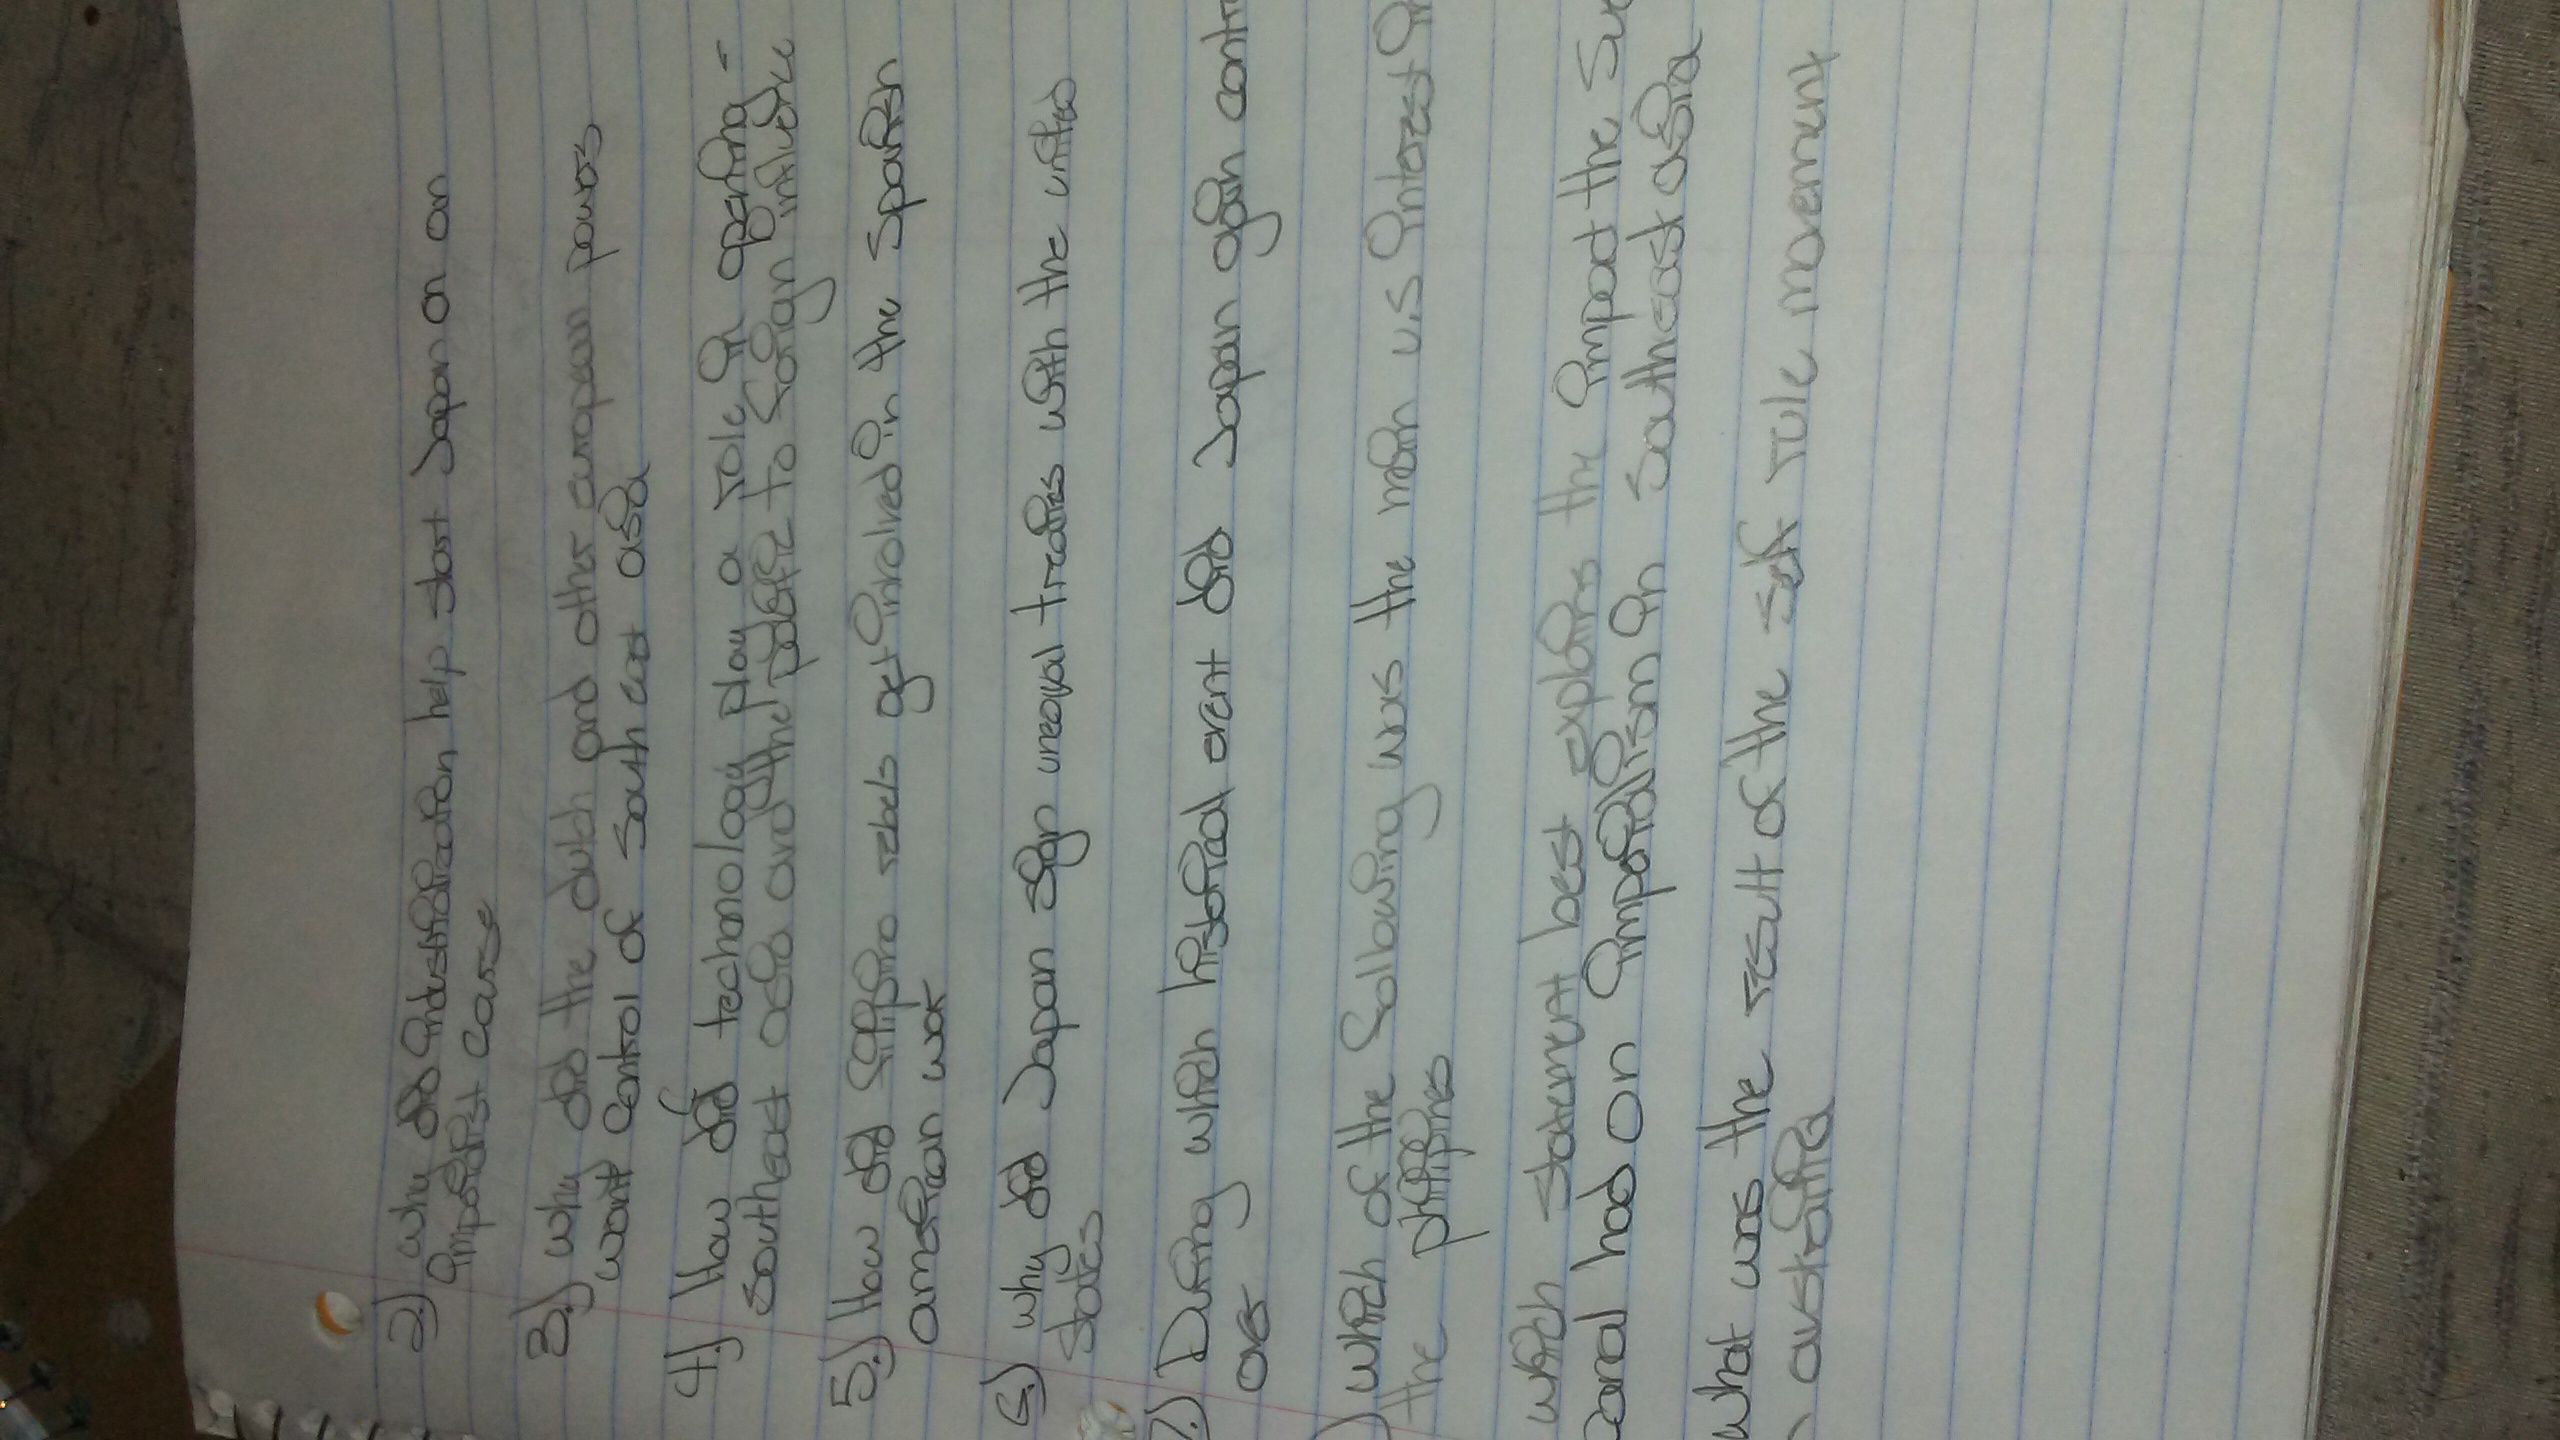 2.) why did industrilization help start Japan on an
imperialist course
3.) why did the dutch and other european powers
want control of south east asia
4.) How did technology play a role in opening -
southeast asia and the pacific to foreign influence
5.) How did filipino rebels get involved in the spanish
american war
6.) why did Japan sign unequal treaties with the united
states
7.) During which historical event did Japan gain contr
over
) which of the following was the main u.s interest in
the philippines
which statement best explains the impact the Sue
canal had on imperialism in southeast asia
what was the result of the self rule movement
australia